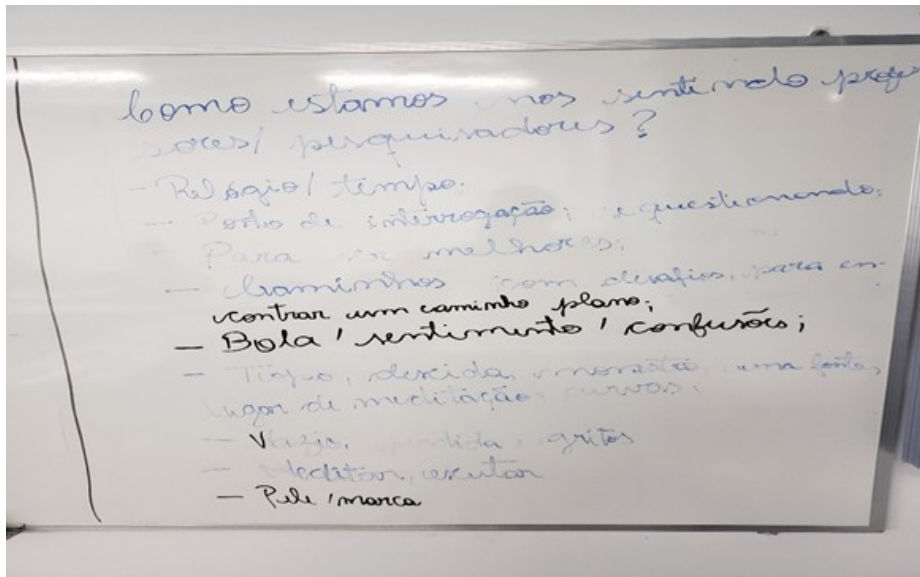 Como estamos nos sentindo profes
sores/ pesquisadores?
- Relógio/ tempo.
- Ponto de interrogação; se questionando;
- Para ser melhores;
- Caminhos com desafios, para en-
contrar um caminho plano;
- Bola / sentimento / confusões;
- descida, uma fonte,
lugar de meditação, curvas;
- Vazio, perdida, gritos
- Meditar, escutar
- Pele / marca